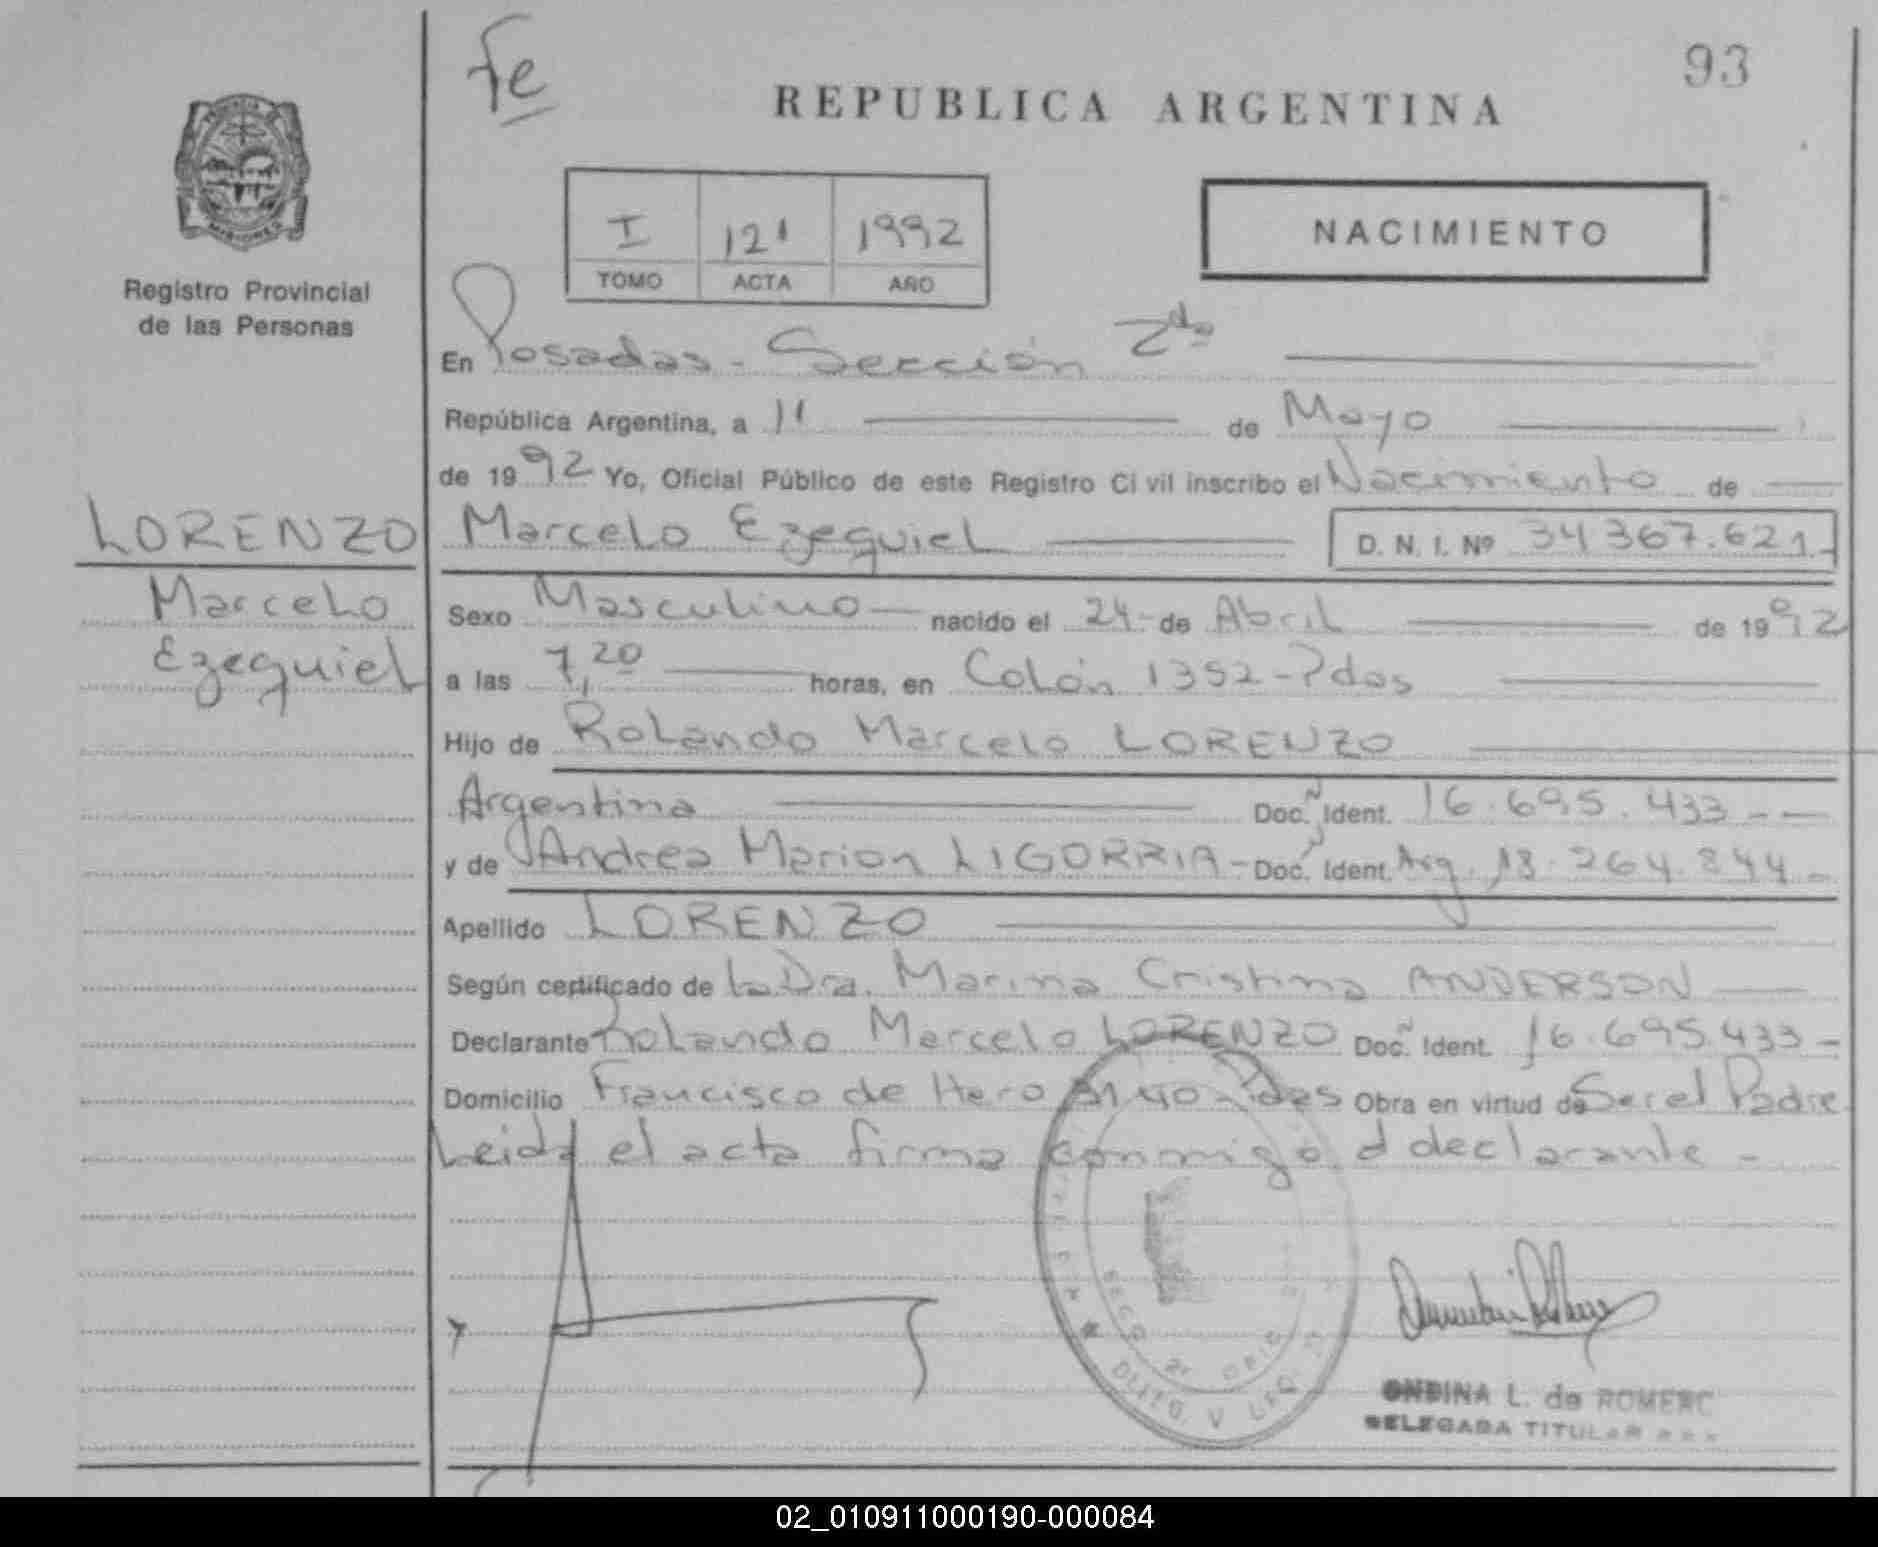 Fe
93
REPUBLICA ARGENTINA
MISIONES
Registro Provincial
de las Personas
I 121 1992
TOMO ACTA AÑO
NACIMIENTO
En Posadas - Sección 2da
República Argentina, a 11 de Mayo
de 1992 Yo, Oficial Público de este Registro Civil inscribo el Nacimiento de
LORENZO Marcelo Ezequiel D. N. I. Nº 34 367.621.-
Marcelo
Ezequiel
Sexo Masculino nacido el 24 - de Abril de 1992
a las 7,20 horas, en Colón 1392 - Pdas
Hijo de Rolando Marcelo LORENZO
Argentina Doc. Ident. 16.695.433 - -
y de Andrea Marion LIGORRIA - Doc. Ident. Arg. 18.264.844 -
Apellido LORENZO
Según certificado de la Dra. Marina Cristina ANDERSON
Declarante Rolando Marcelo LORENZO Doc. Ident. 16.695.433 -
Domicilio Francisco de Haro Pdas Obra en virtud de Ser el Padre
Leida el acta firma conmigo el declarante -
ONDINA L. de ROMERO
DELEGADA TITULAR
02_010911000190-000084